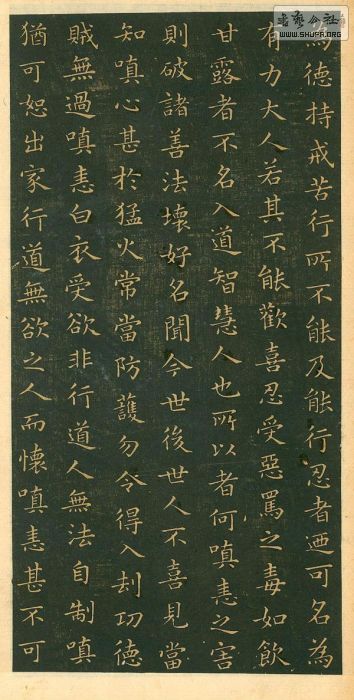 為德持戒苦行所不能及能行忍者迺可名為
有力大人若其不能歡喜忍受惡罵之毒如飲
甘露者不名入道智慧人也所以者何嗔恚之害
則破諸善法壞好名聞今世後世人不喜見當
知嗔心甚於猛火常當防護勿令得入刧功德
賊無過嗔恚白衣受欲非行道人無法自制嗔
猶可恕出家行道無欲之人而懷嗔恚甚不可
书艺公社
WWW.SHUFA.ORG